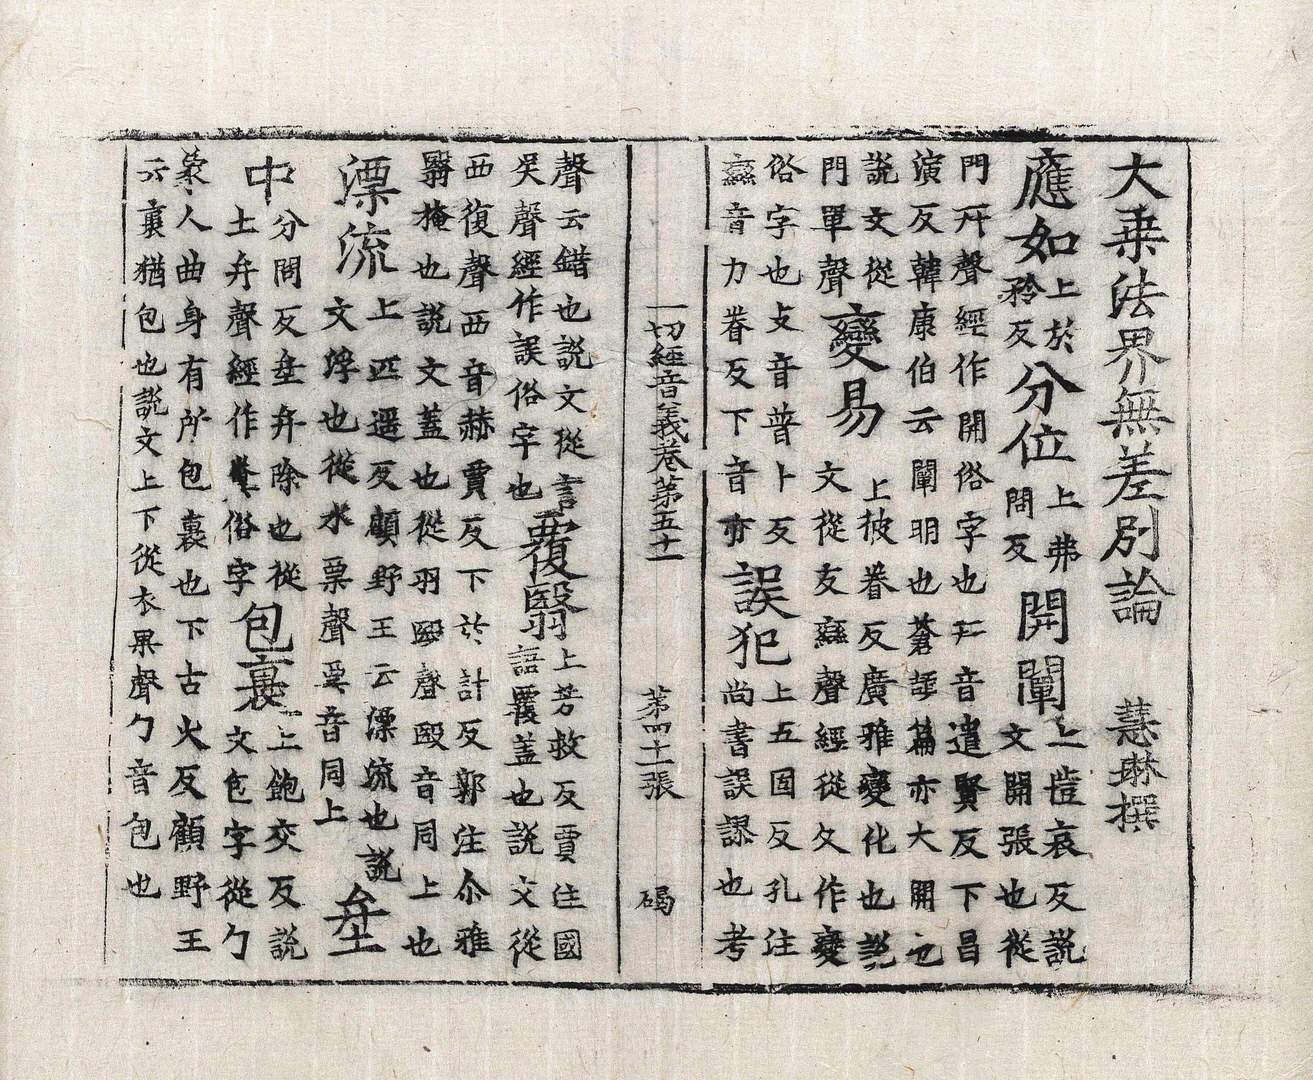 大乗法界無差別論 慧琳撰
應如 上於矜反 分位 上弗問反 開闡 上愷哀反說文開張也從
門开聲經作開俗字也开音遣賢反下昌
演反韓康伯云闡明也蒼頡篇亦大開也
說文從門單聲 變易 上彼眷反廣雅變化也說文從攴䜌聲經從夂作變
俗字也攴音普卜反䜌音力眷反下音亦 誤犯 上五固反孔注尚書誤謬也考
一切經音義卷第五十一 苐四十一張 碣
聲云錯也說文從言吳聲經作誤俗字也 覆翳 上芳救反賈注國語覆蓋也說文從
襾復聲襾音赫賈反下於計反郭注尒雅
翳掩也說文蓋也從羽殹聲殹音同上也
漂流 上匹遥反顧野王云漂流也說文浮也從水票聲票音同上 坌
中 分問反坌弁除也從土弁聲經作坌俗字 包裹 上飽交反說文包字從勹
象人曲身有所包裹也下古火反顧野王
云裹猶包也說文上下從衣果聲勹音包也